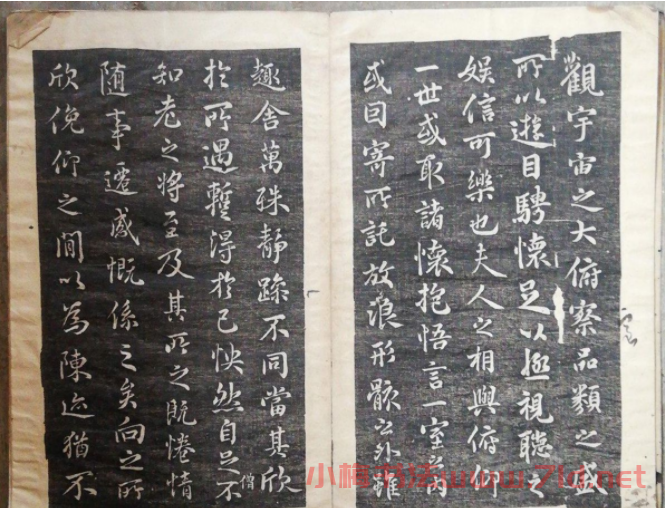 觀宇宙之大俯察品類之盛
所以遊目騁懷足以極視聽之
娛信可樂也夫人之相與俯仰
一世或取諸懷抱悟言一室之內
或因寄所託放浪形骸之外雖
趣舍萬殊靜躁不同當其欣
僧
於所遇蹔得於己怏然自足不
知老之將至及其所之既惓情
随事遷感慨係之矣向之所
欣俛仰之閒以為陳迹猶不
小梅书法www.7ld.net